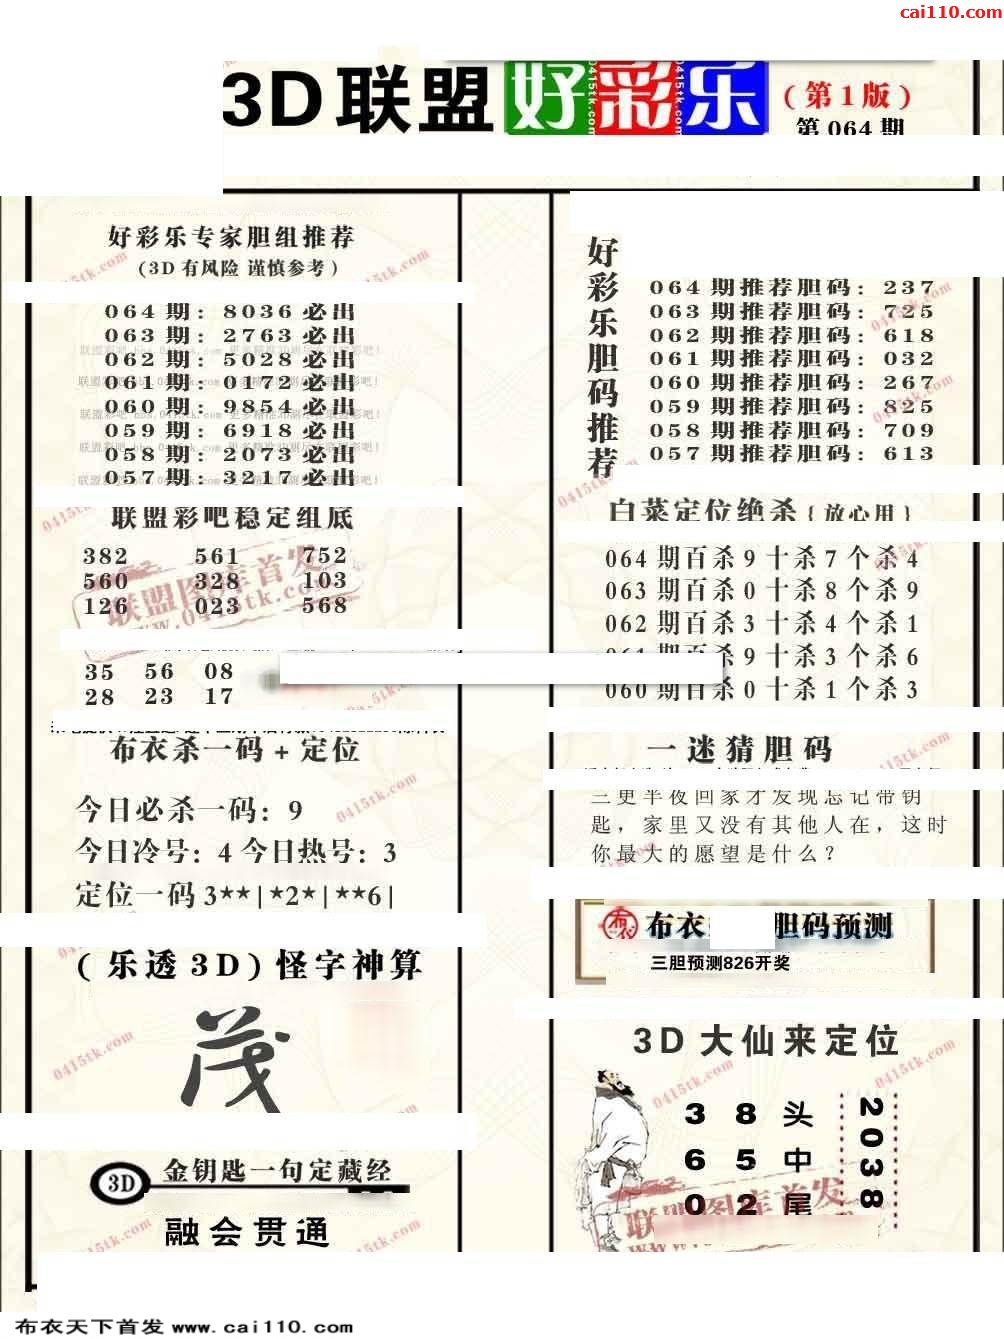 cai110.com
3D联盟好彩乐
(第1版)
第064期
好彩乐专家胆组推荐
(3D有风险 谨慎参考)
064期: 8036必出
063期: 2763必出
062期: 5028必出
061期: 0172必出
060期: 9854必出
059期: 6918必出
058期: 2073必出
057期: 3217必出
联盟彩吧稳定组底
382 561 752
560 328 103
126 023 568
35 56 08
28 23 17
布衣杀一码+定位
今日必杀一码: 9
今日冷号: 4 今日热号: 3
定位一码3**|*2*|**6|
(乐透3D)怪字神算
茂
3D 金钥匙一句定藏经
融会贯通
好彩乐胆码推荐
064期推荐胆码: 237
063期推荐胆码: 725
062期推荐胆码: 618
061期推荐胆码: 032
060期推荐胆码: 267
059期推荐胆码: 825
058期推荐胆码: 709
057期推荐胆码: 613
白菜定位绝杀{放心用}
064期百杀9十杀7个杀4
063期百杀0十杀8个杀9
062期百杀3十杀4个杀1
061期百杀9十杀3个杀6
060期百杀0十杀1个杀3
一迷猜胆码
三更半夜回家才发现忘记带钥
匙，家里又没有其他人在，这时
你最大的愿望是什么？
布衣 胆码预测
三胆预测826开奖
3D大仙来定位
3 8 头
6 5 中
0 2 尾
2038
联盟图库首发
www.0415tk.com
0415tk.com
布衣天下首发 www.cai110.com